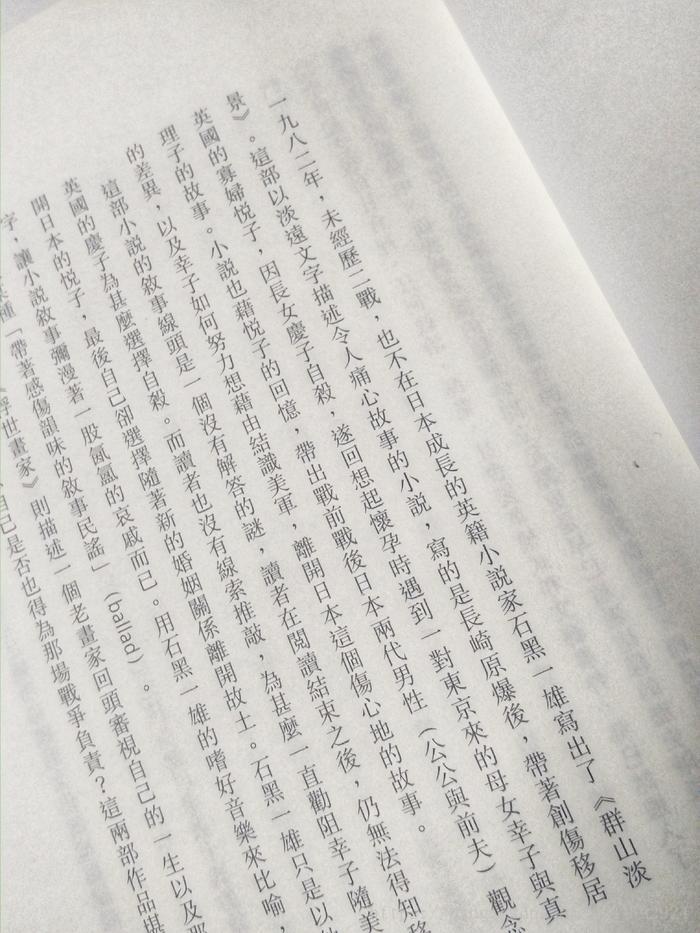 一九八二年，未經歷二戰，也不在日本成長的英籍小說家石黑一雄寫出了《群山淡
景》。這部以淡遠文字描述令人痛心故事的小說，寫的是長崎原爆後，帶著創傷移居
英國的寡婦悅子，因長女慶子自殺，遂回想起懷孕時遇到一對東京來的母女幸子與真
理子的故事。小說也藉悅子的回憶，帶出戰前戰後日本兩代男性（公公與前夫）觀念
的差異，以及幸子如何努力想藉由結識美軍，離開日本這個傷心地的故事。
這部小說的敘事線頭是一個沒有解答的謎，讀者在閱讀結束之後，仍無法得知移
英國的慶子為甚麼選擇自殺。而讀者也沒有線索推敲，為甚麼一直勸阻幸子隨美
開日本的悅子，最後自己卻選擇隨著新的婚姻關係離開故土。石黑一雄只是以
字，讓小說敘事彌漫著一股氤氳的哀戚而已。用石黑一雄的嗜好音樂來比喻，
種「帶著感傷韻味的敘事民謠」（ballad）。
浮世畫家》則描述一個老畫家回頭審視自己的一生以及那
自己是否也得為那場戰爭負責？這兩部作品